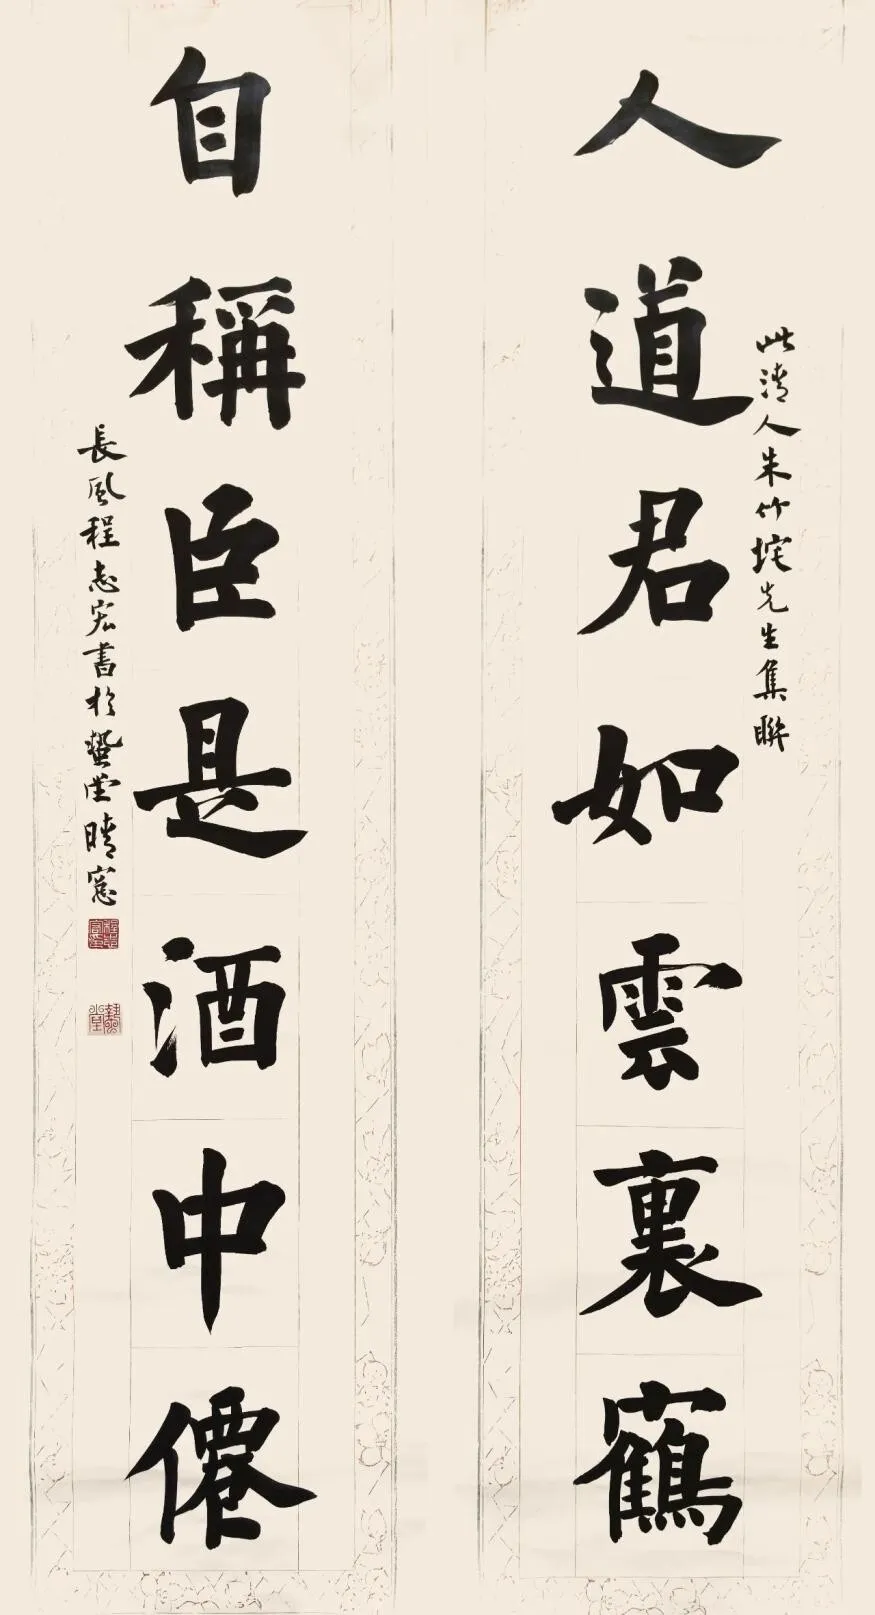 人道君如雲裏鶴
此清人朱竹垞先生集聯
自稱臣是酒中僊
長風程志宏書於蟄堂晴窻